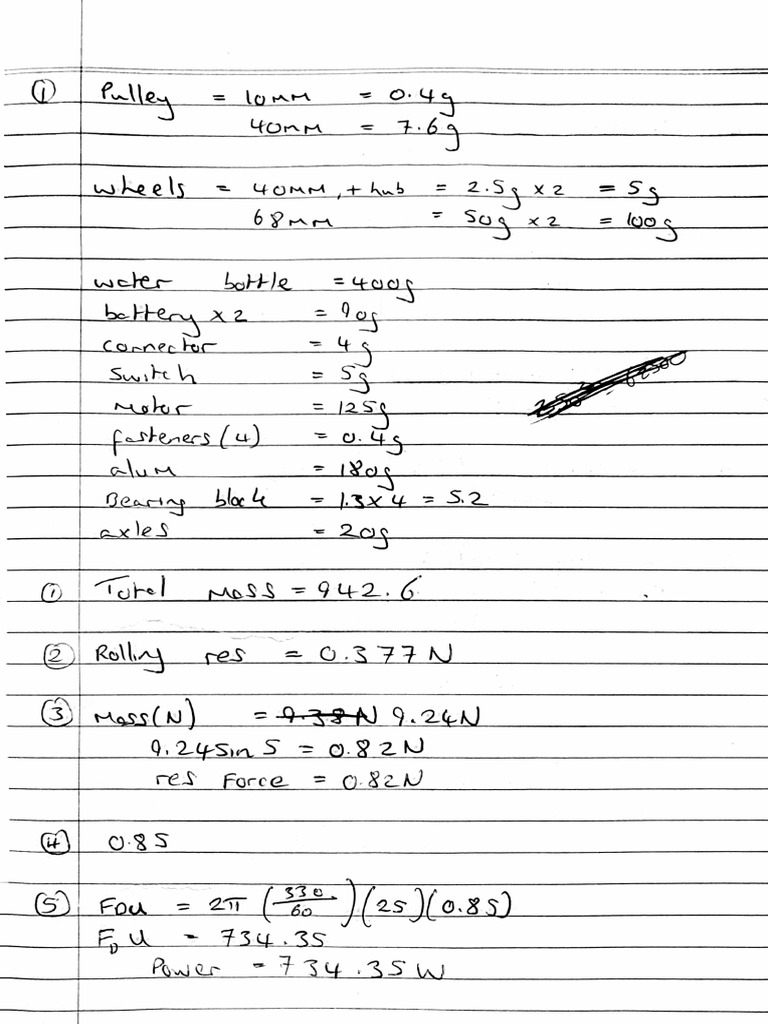 ① Pulley = 10mm = 0.4g
40mm = 7.6g
wheels = 40mm, + hub = 2.5g x2 = 5g
68mm = 50g x2 = 100g
water bottle = 400g
battery x2 = 90g
connector = 4g
Switch = 5g
Motor = 125g
fasteners (4) = 0.4g
alum = 180g
Bearing block = 1.3 x 4 = 5.2
axles = 20g
① Total Mass = 942.6
② Rolling res = 0.377N
③ Mass(N) = 9.38N 9.24N
9.24sin5 = 0.82N
res Force = 0.82N
④ 0.85
⑤ FDU = 2π (330/60)(25)(0.85)
FDU = 734.35
Power = 734.35W